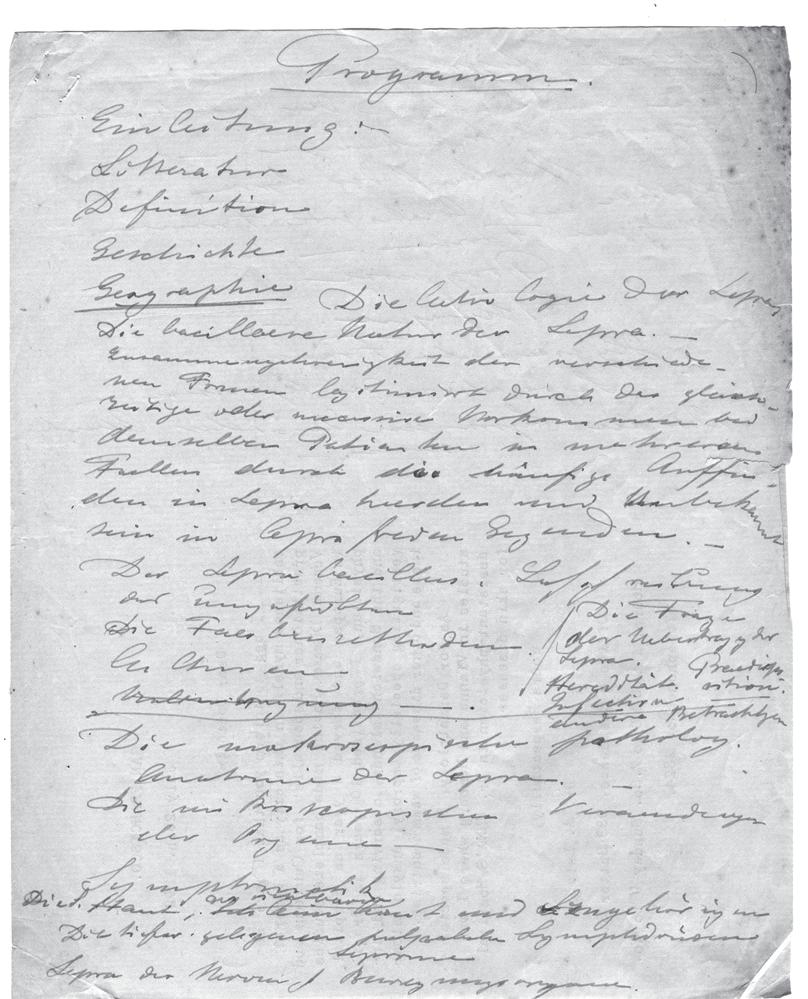 Programm.
Einleitung:-
Litteratur
Definition
Geschichte
Geographie Die Aetiologie der Lepra
Die bacillaere Natur der Lepra. —
Zusammengehoerigkeit der verschiede-
nen Formen legitimirt durch das gleich-
zeitige oder successive Vorkommen bei
demselben Patienten in mehreren
Faellen durch die häufige Auffin-
den in Lepra heerden und Unbekannt
sein in leprafreien Gegenden. —
Der Lepra bacillus.
der ungefärbten
Die Faerbemethoden.
Culturen
Die Frage
der Uebertragg der
Lepra. Praedispo-
Heredität sition.
Infection
andere Betrachtgen
Die makroscopische patholog.
Anatomie der Lepra. —
Die mikroscopischen Veraenderungen
der Organe —
Symptomatik
Die d. Haut, Schleimhaut und Zugehörigen
Die tiefer gelegenen palpabelen Lymphdrüsen
Leprome
Lepra der Nerven Bewegungsorgane.